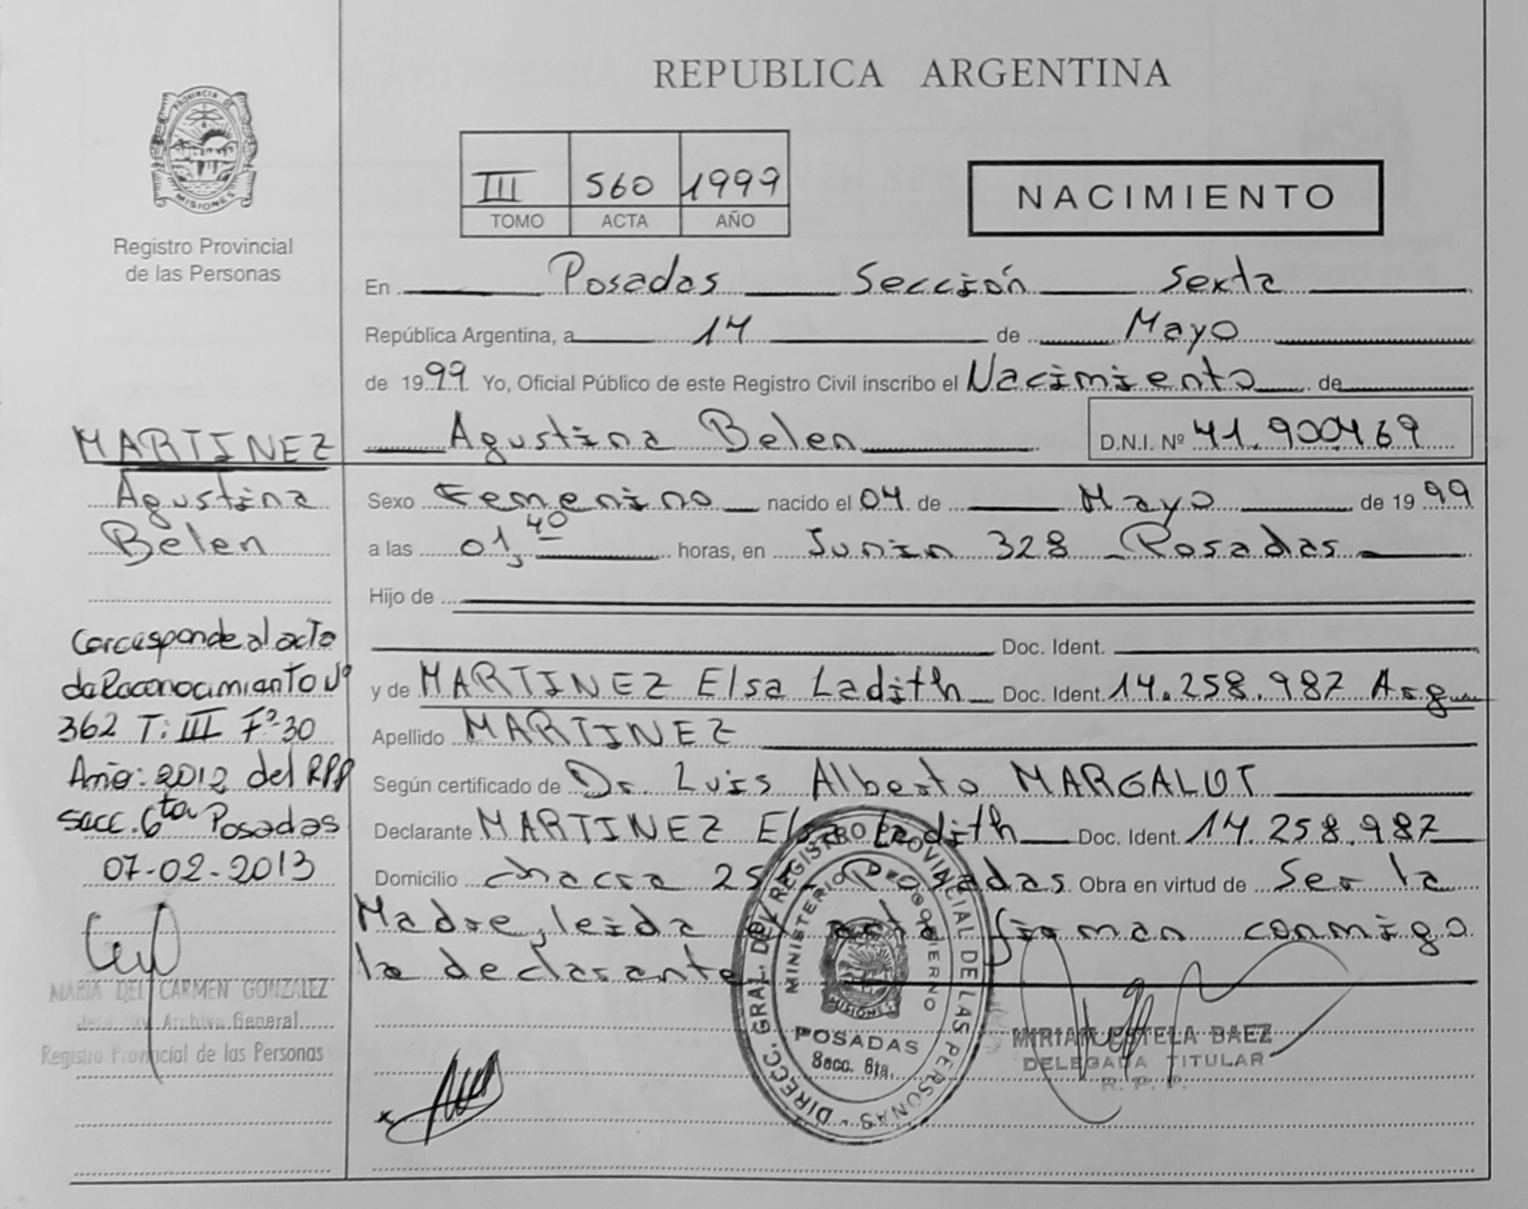 REPUBLICA ARGENTINA
PROVINCIA DE
MISIONES
Registro Provincial
de las Personas
III 560 1999
TOMO ACTA AÑO
NACIMIENTO
En Posadas Sección Sexta
República Argentina, a 14 de Mayo
de 1999 Yo, Oficial Público de este Registro Civil inscribo el Nacimiento de
Agustina Belen D.N.I. Nº 41.900469
Sexo Femenino nacido el 04 de Mayo de 1999
a las 01,40 horas, en Junin 328 - Posadas
Hijo de
Doc. Ident.
y de MARTINEZ Elsa Ladith Doc. Ident. 14.258.987 Arg
Apellido MARTINEZ
Según certificado de Dr. Luis Alberto MARGALOT
Declarante MARTINEZ Elsa Ladith Doc. Ident. 14.258.987
Domicilio chacra Posadas Obra en virtud de Ser la
Madre, leida el acta firman conmigo
la declarante
MARTINEZ
Agustina
Belen
Corresponde al acta
de Reconocimiento Nº
362 T: III Fº 30
Año: 2012 del RPP
secc. 6ta Posadas
07-02-2013
MARIA DEL CARMEN GONZALEZ
Archivo General
Registro Provincial de las Personas
DIRECC. GRAL. DEL REGISTRO PROVINCIAL DE LAS PERSONAS
MINISTERIO DE GOBIERNO
MISIONES
POSADAS
Secc. 6ta.
MIRIAM ESTELA BAEZ
DELEGADA TITULAR
R. P. P.